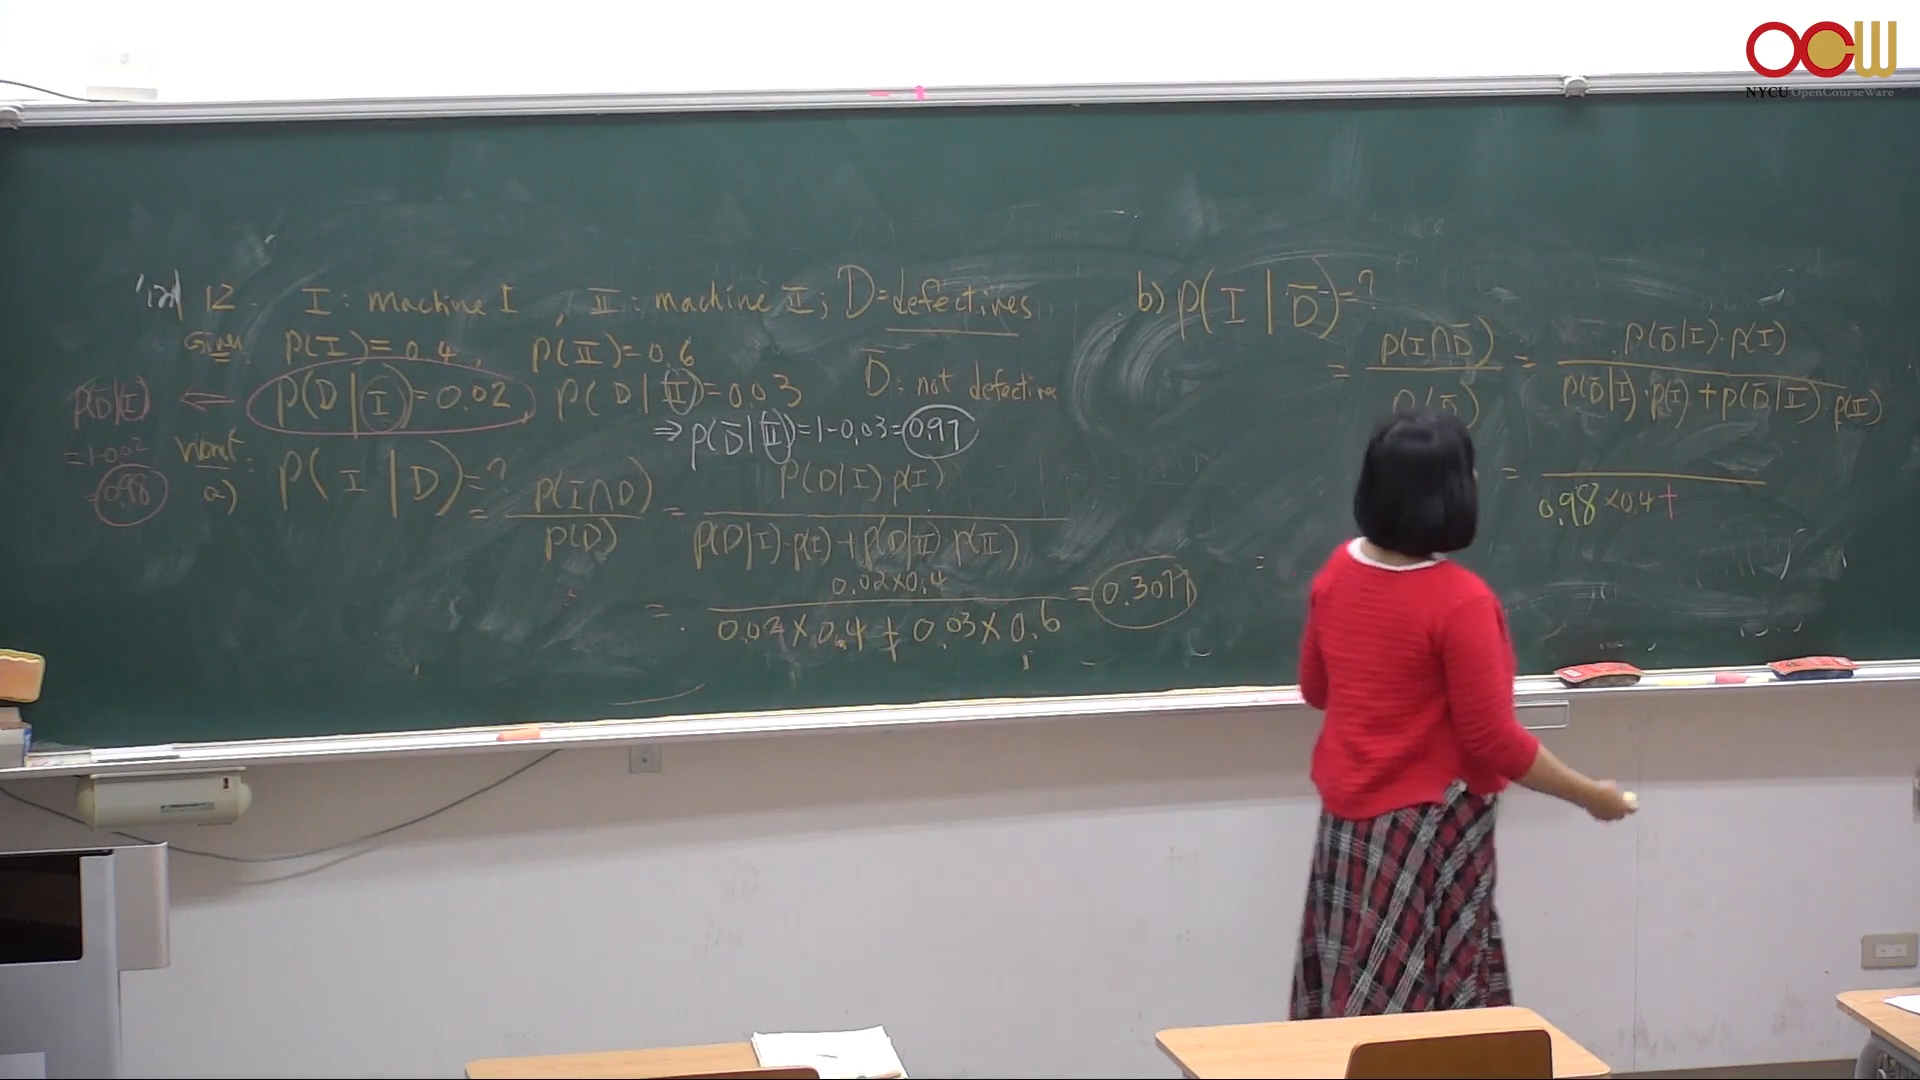 OCW
NYCU OpenCourseWare
12. I : machine I , II : machine II ; D = defectives
Given P(I) = 0.4 , P(II) = 0.6
D̄ : not defective
P(D̄|I) ⇐ P(D|I) = 0.02 P(D|II) = 0.03
= 1-0.02
= 0.98
⇒ P(D̄|II) = 1-0.03 = 0.97
Want:
a) P(I|D) = ?
= P(I∩D) / P(D) = P(D|I) P(I) / P(D|I)·P(I) + P(D|II)·P(II)
= 0.02×0.4 / 0.02×0.4 + 0.03×0.6 = 0.3077
b) P(I|D̄) = ?
= P(I∩D̄) / P(D̄) = P(D̄|I)·P(I) / P(D̄|I)·P(I) + P(D̄|II)·P(II)
= 0.98×0.4 +